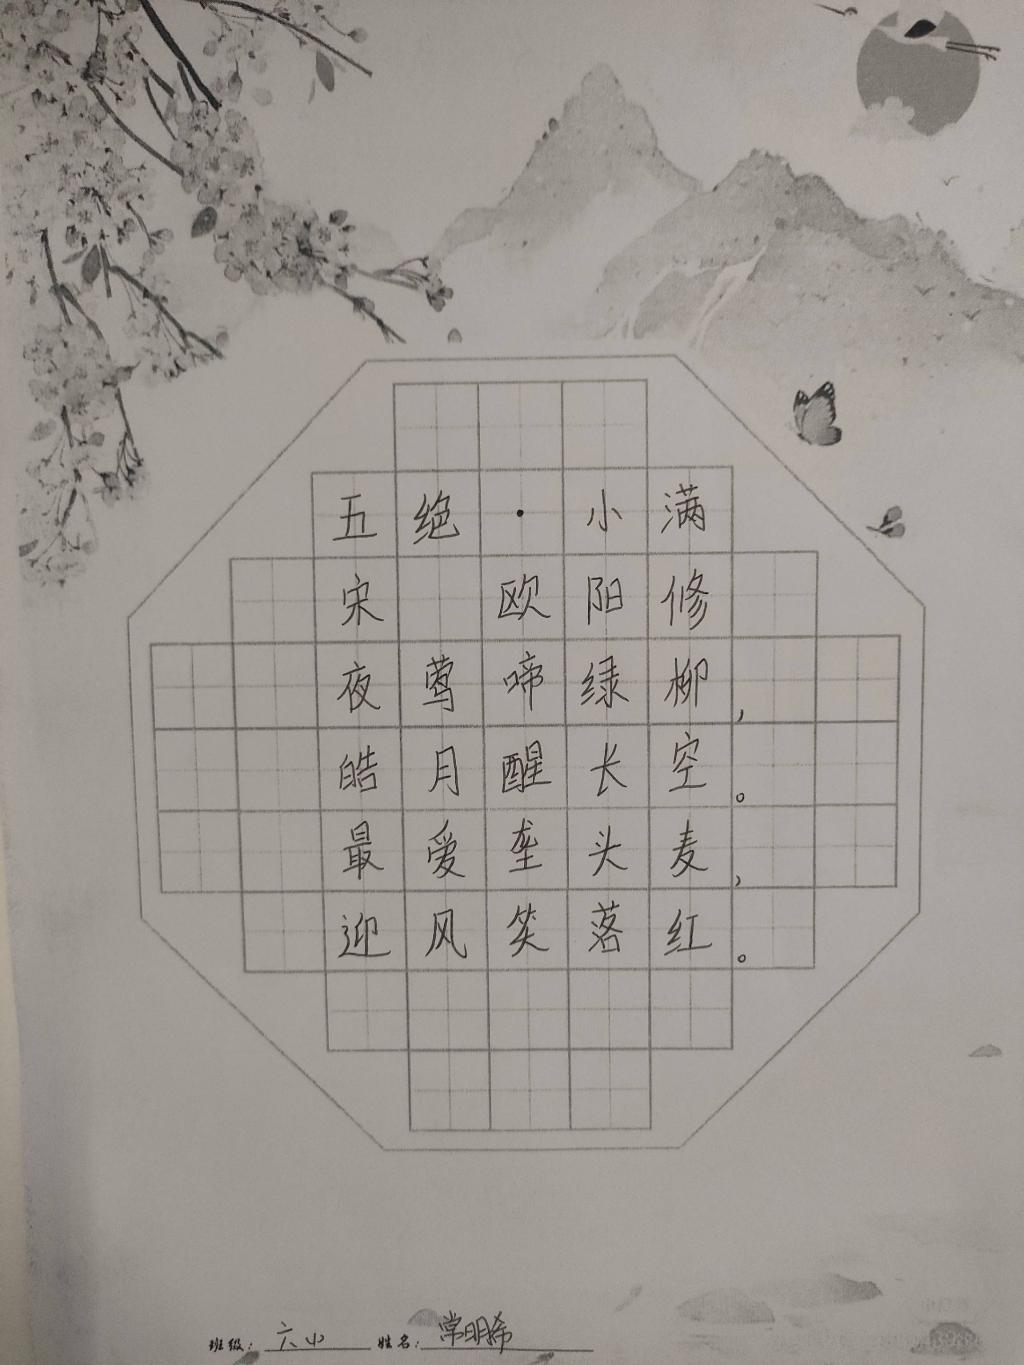 五绝·小满
宋 欧阳修
夜莺啼绿柳，
皓月醒长空。
最爱垄头麦，
迎风笑落红。
班级： 姓名：常明希